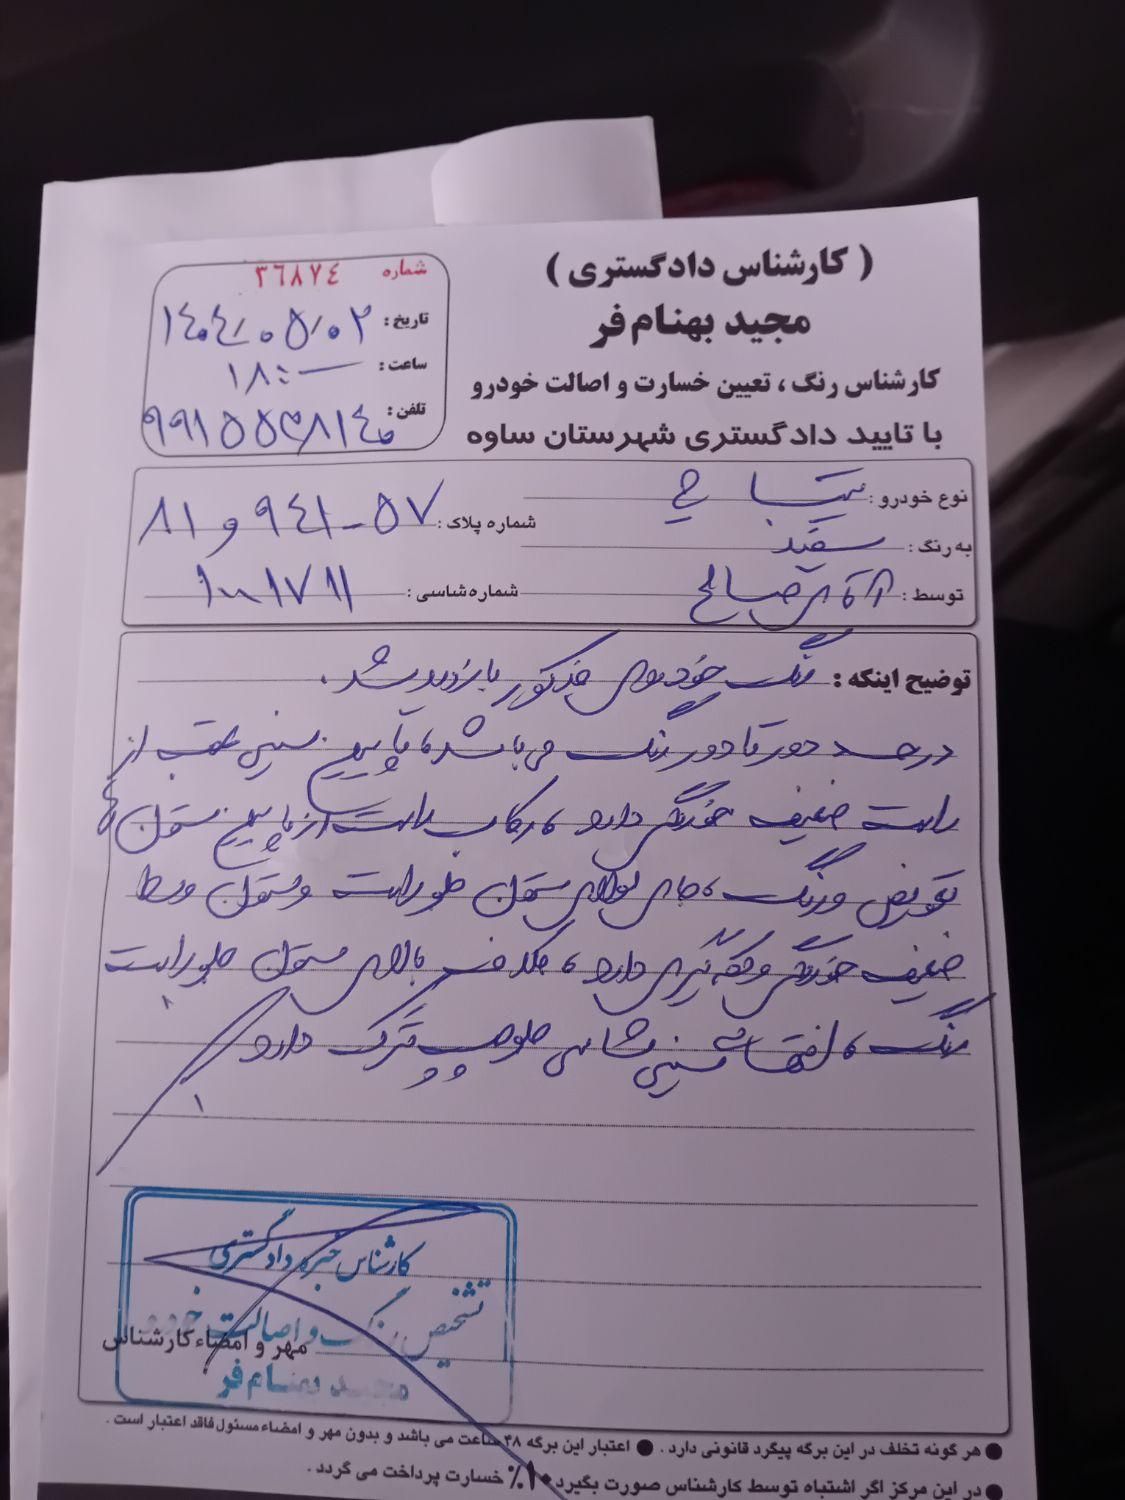 ( کارشناس دادگستری )
مجید بهنام‌فر
کارشناس رنگ ، تعیین خسارت و اصالت خودرو
با تایید دادگستری شهرستان ساوه
شماره ۳٦٨٧٤
تاریخ : ۱۴۰۴/۰۵/۰۲
ساعت : ۱۸:۰۰
تلفن :
نوع خودرو : تیبا
شماره پلاک : ۵۷ - ۹۴۱ و ۸۱
به رنگ : سفید
توسط : آقای صالح
شماره شاسی : ۱۰۰۱۷۱۱
توضیح اینکه : رنگ خودروی مذکور بازدید شد .
درصد دور تا دور رنگ می باشد ، پایین سینی عقب از
راست ضعیف خوردگی دارد ، رکاب راست از پایین ستون
تعویض و رنگ ، جای لولای ستون جلو راست و ستون وسط
ضعیف خوردگی و دارد ، بالای ستون جلو راست
رنگ ، شاسی جلو چپ ترک دارد
کارشناس خبره دادگستری
تشخیص رنگ و اصالت خودرو
مهر و امضاء کارشناس
مجید بهنام‌فر
● هر گونه تخلف در این برگه پیگرد قانونی دارد . ● اعتبار این برگه ۴۸ ساعت می باشد و بدون مهر و امضاء مسئول فاقد اعتبار است .
● در این مرکز اگر اشتباه توسط کارشناس صورت بگیرد ۱۰٪ خسارت پرداخت می گردد .